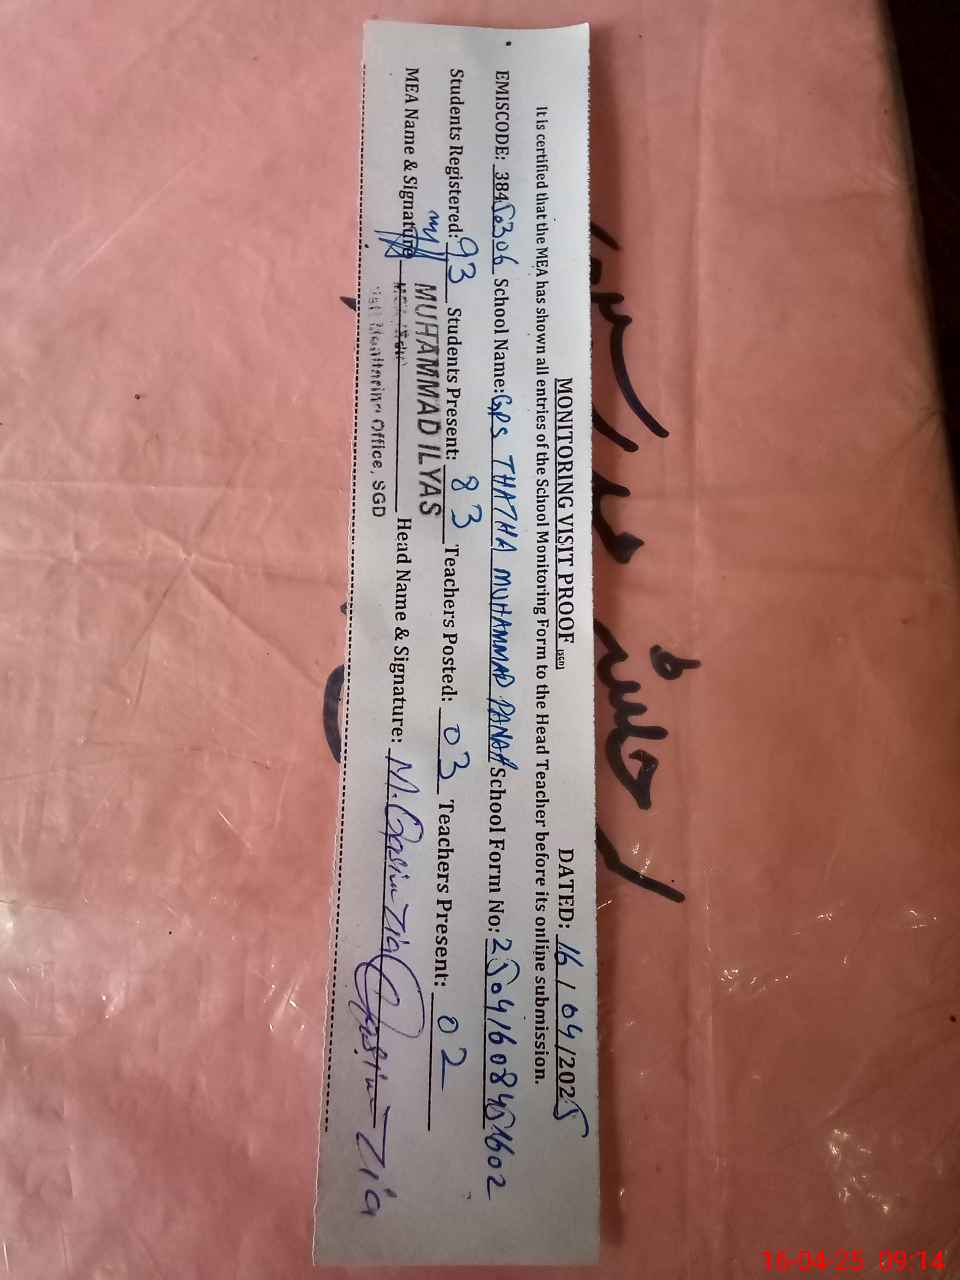 MONITORING VISIT PROOF (SGD) DATED: 16/04/2025
It is certified that the MEA has shown all entries of the School Monitoring Form to the Head Teacher before its online submission.
EMISCODE: 38450306 School Name: GPS THATHA MUHAMMAD PANAH School Form No: 25041608451602
Students Registered: 93 Students Present: 83 Teachers Posted: 03 Teachers Present: 02
MUHAMMAD ILYAS
MEA Name & Signature Head Name & Signature: M. Qasim Zia Qasim Zia
Monitoring Office, SGD
16-04-25 09:14